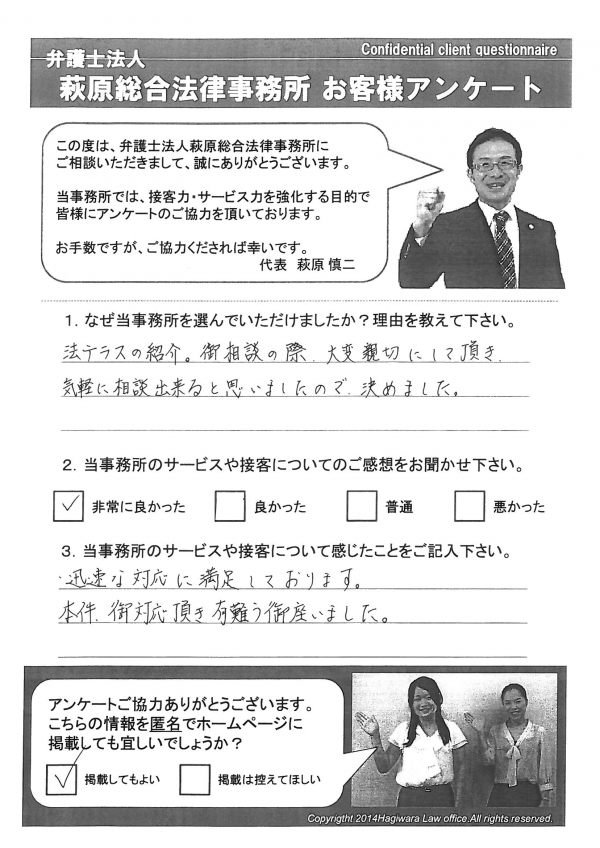 Confidential client questionnaire
弁護士法人
萩原総合法律事務所 お客様アンケート
この度は、弁護士法人萩原総合法律事務所に
ご相談いただきまして、誠にありがとうございます。
当事務所では、接客力・サービス力を強化する目的で
皆様にアンケートのご協力を頂いております。
お手数ですが、ご協力くだされば幸いです。
代表 萩原 慎二
1．なぜ当事務所を選んでいただけましたか？理由を教えて下さい。
法テラスの紹介。御相談の際、大変親切にして頂き、
気軽に相談出来ると思いましたので、決めました。
2．当事務所のサービスや接客についてのご感想をお聞かせ下さい。
✓ 非常に良かった 良かった 普通 悪かった
3．当事務所のサービスや接客について感じたことをご記入下さい。
・迅速な対応に満足しております。
本件、御対応頂き有難う御座いました。
アンケートご協力ありがとうございます。
こちらの情報を匿名でホームページに
掲載しても宜しいでしょうか？
✓ 掲載してもよい 掲載は控えてほしい
Copyrightc 2014Hagiwara Law office.All rights reserved.